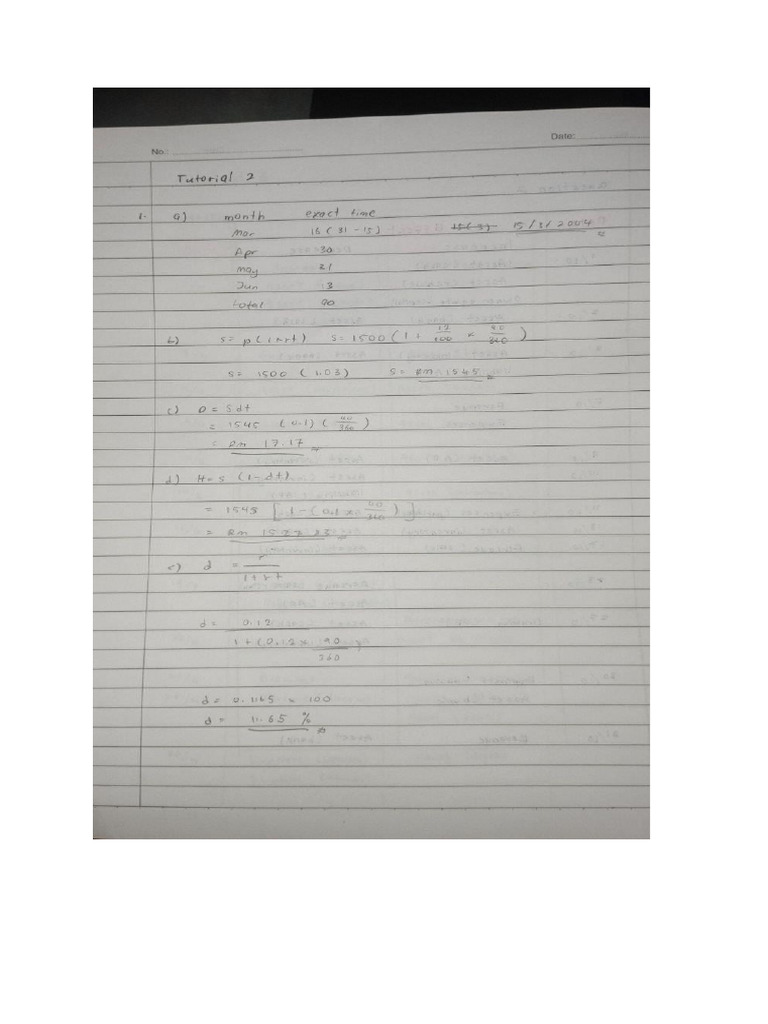 No.:
Date:
Tutorial 2
1. a) month exact time
Mar 16 (31-15) 15/3/2004
Apr 30
May 31
Jun 13
total 90
b) S = P(1+rt) S = 1500 (1 + 12/100 × 90/360)
S = 1500 (1.03) S = RM 1545
c) D = Sdt
= 1545 (0.1) (40/360)
= RM 17.17
d) H = S (1-dt)
= 1545 [1-(0.1 × /360)]
= RM 1527.83
e) d = r/1+rt
d = 0.12
1+(0.12 × 90
360
d = 0.1165 × 100
d = 11.65 %